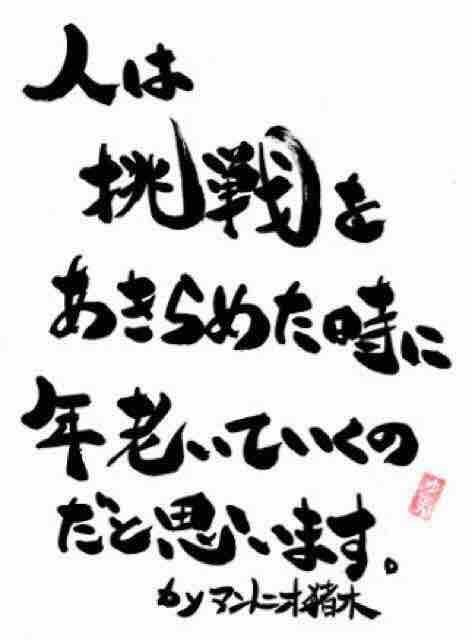 人は
挑戦を
あきらめた時に
年老いていくの
だと思います。
アントニオ猪木